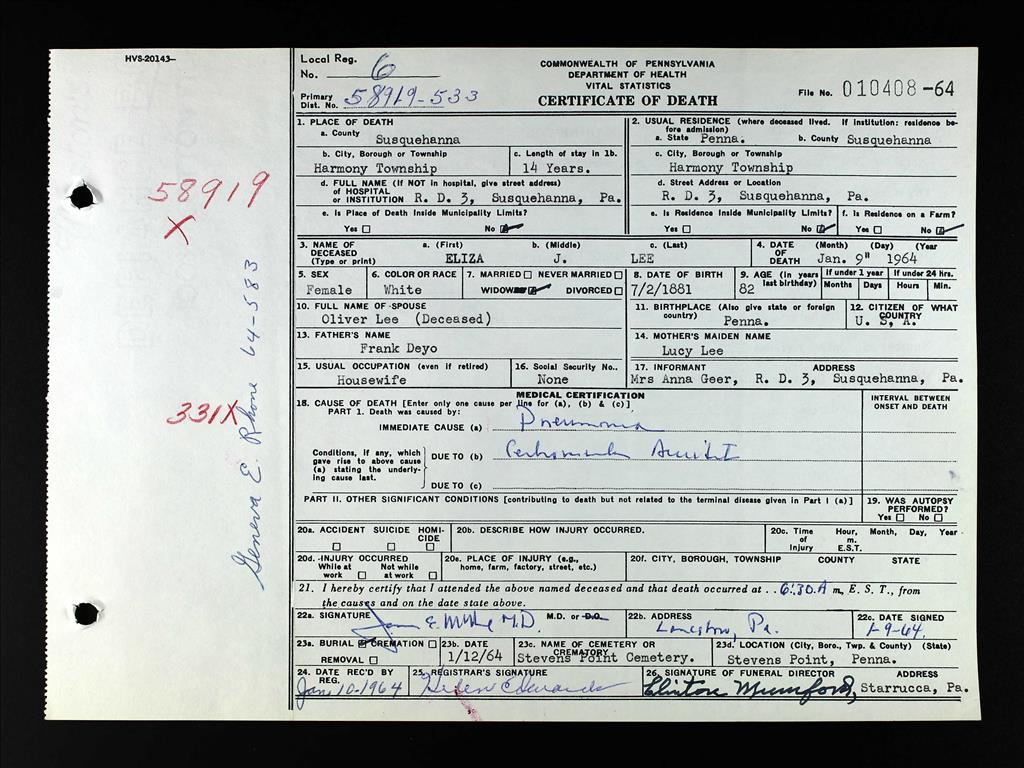 HVS-20143-
Local Reg.
No. 6
Primary
Dist. No. 58919-533
COMMONWEALTH OF PENNSYLVANIA
DEPARTMENT OF HEALTH
VITAL STATISTICS
CERTIFICATE OF DEATH
File No. 010408 -64
1. PLACE OF DEATH
a. County
Susquehanna
b. City, Borough or Township
Harmony Township
c. Length of stay in 1b.
14 Years.
d. FULL NAME (If NOT in hospital, give street address)
of HOSPITAL
or INSTITUTION R. D. 3, Susquehanna, Pa.
e. Is Place of Death Inside Municipality Limits?
Yes ☐ No ☑
2. USUAL RESIDENCE (where deceased lived. If institution: residence be-
fore admission)
a. State Penna. b. County Susquehanna
c. City, Borough or Township
Harmony Township
d. Street Address or Location
R. D. 3, Susquehanna, Pa.
e. Is Residence Inside Municipality Limits?
Yes ☐ No ☑
f. Is Residence on a Farm?
Yes ☐ No ☑
3. NAME OF
DECEASED
(Type or print)
a. (First) b. (Middle) c. (Last)
ELIZA J. LEE
4. DATE
OF
DEATH
(Month) (Day) (Year
Jan. 9" 1964
5. SEX
Female
6. COLOR OR RACE
White
7. MARRIED ☐ NEVER MARRIED ☐
WIDOWED ☑ DIVORCED ☐
8. DATE OF BIRTH
7/2/1881
9. AGE (in years
last birthday)
82
If under 1 year
Months Days
If under 24 Hrs.
Hours Min.
10. FULL NAME OF SPOUSE
Oliver Lee (Deceased)
11. BIRTHPLACE (Also give state or foreign
country)
Penna.
12. CITIZEN OF WHAT
COUNTRY
U. S. A.
13. FATHER'S NAME
Frank Deyo
14. MOTHER'S MAIDEN NAME
Lucy Lee
15. USUAL OCCUPATION (even if retired)
Housewife
16. Social Security No..
None
17. INFORMANT ADDRESS
Mrs Anna Geer, R. D. 3, Susquehanna, Pa.
MEDICAL CERTIFICATION
18. CAUSE OF DEATH [Enter only one cause per line for (a), (b) & (c)]
PART 1. Death was caused by:
IMMEDIATE CAUSE (a) Pneumonia
Conditions, if any, which
gave rise to above cause
(a) stating the underly-
ing cause last.
DUE TO (b)
DUE TO (c)
INTERVAL BETWEEN
ONSET AND DEATH
PART II. OTHER SIGNIFICANT CONDITIONS [contributing to death but not related to the terminal disease given in Part I (a)]
19. WAS AUTOPSY
PERFORMED?
Yes ☐ No ☐
20a. ACCIDENT SUICIDE HOMI-
CIDE
☐ ☐ ☐
20b. DESCRIBE HOW INJURY OCCURRED.
20c. Time
of
Injury
Hour, Month, Day, Year
m.
E.S.T.
20d. INJURY OCCURRED
While at
work ☐
Not while
at work ☐
20e. PLACE OF INJURY (e.g.,
home, farm, factory, street, etc.)
20f. CITY, BOROUGH, TOWNSHIP COUNTY STATE
21. I hereby certify that I attended the above named deceased and that death occurred at . . 6:30 A m., E. S. T., from
the causes and on the date state above.
22a. SIGNATURE M.D. M.D. or D.O.
22b. ADDRESS
Pa.
22c. DATE SIGNED
1-9-64.
23a. BURIAL ☑ CREMATION ☐
REMOVAL ☐
23b. DATE
1/12/64
23c. NAME OF CEMETERY OR
CREMATORY
Stevens Point Cemetery.
23d. LOCATION (City, Boro., Twp. & County) (State)
Stevens Point, Penna.
24. DATE REC'D BY
REG.
Jan 10-1964
25. REGISTRAR'S SIGNATURE
Helen Edwards
26. SIGNATURE OF FUNERAL DIRECTOR ADDRESS
Clinton Mumford, Starrucca, Pa.
58919
X
331X
Geneva E. Rhone 64-583